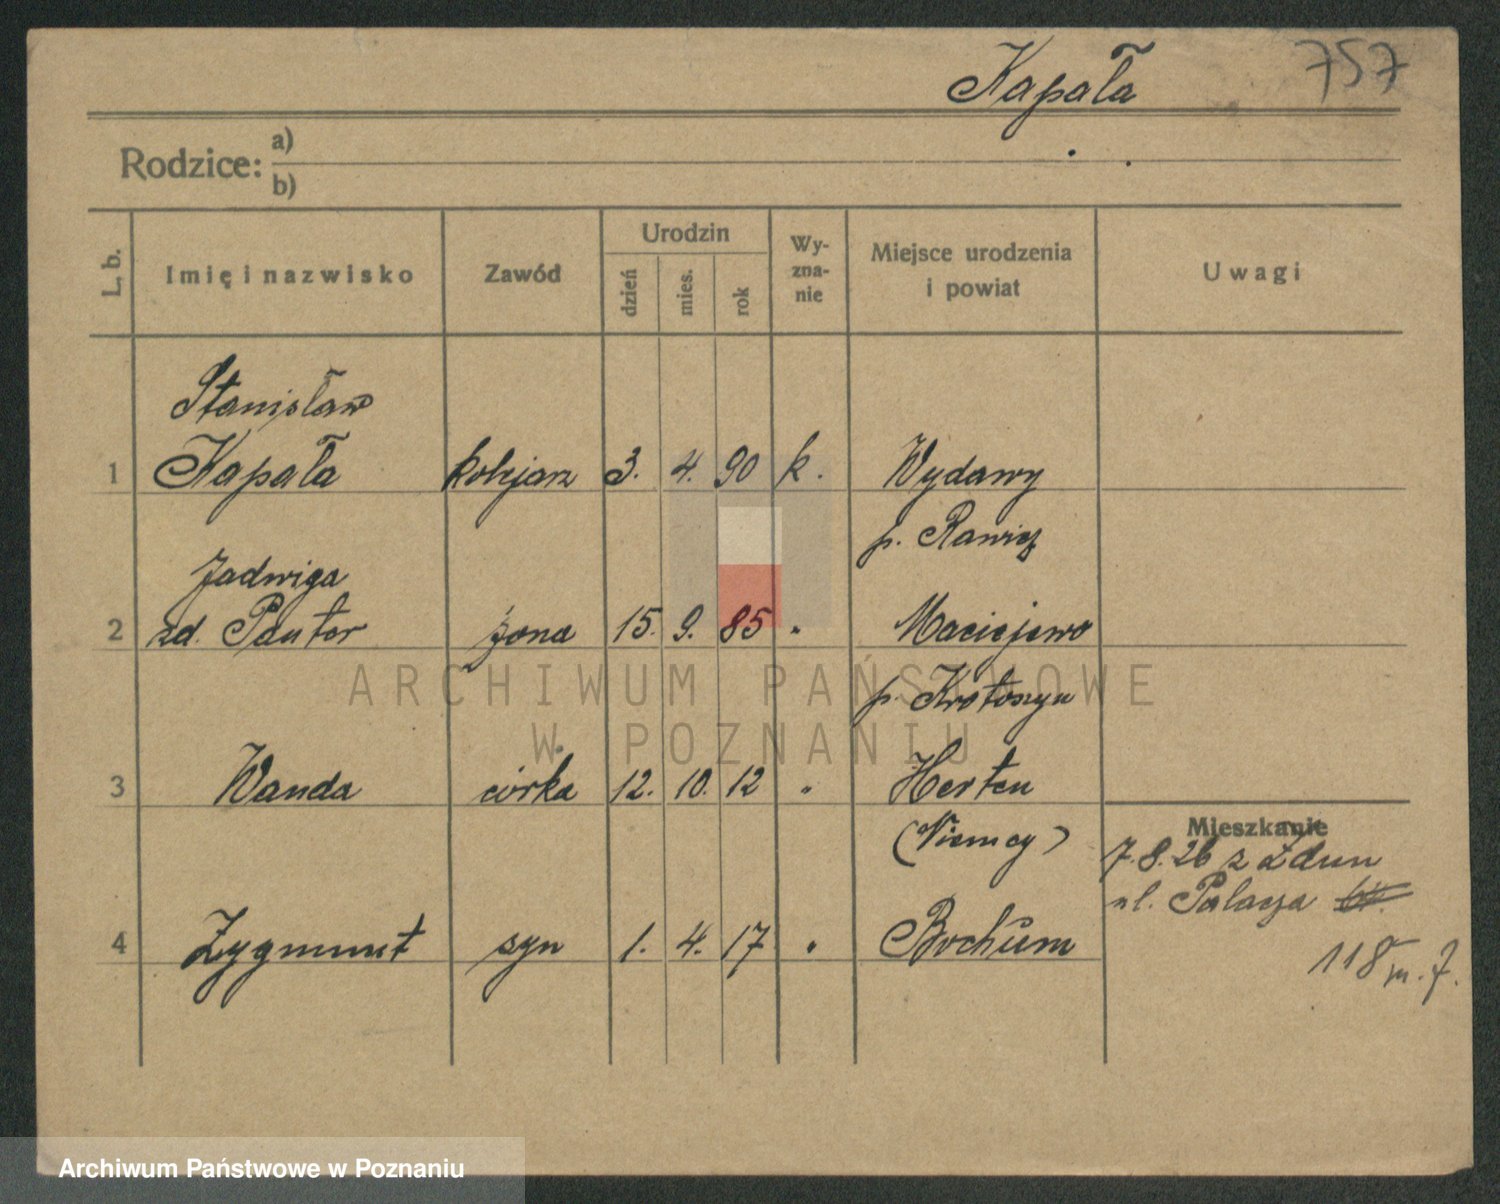 Kapała 757
Rodzice: a)
b)
L. b. Imię i nazwisko Zawód Urodzin dzień mies. rok Wy-zna-nie Miejsce urodzenia i powiat Uwagi
Stanisław
1 Kapała kolejarz 3. 4. 90 k. Wydawy
p. Rawicz
Jadwiga
2 zd. Pauter żona 15. 9. 85 " Maciejewo
p. Krotoszyn
ARCHIWUM PAŃSTWOWE
W POZNANIU
3 Wanda córka 12. 10. 12 " Herten
(Niemcy)
Mieszkanie
7.8.26 z Zdun
ul. Palacza
4 Zygmunt syn 1. 4. 17 " Bochum
118 m. 7.
Archiwum Państwowe w Poznaniu